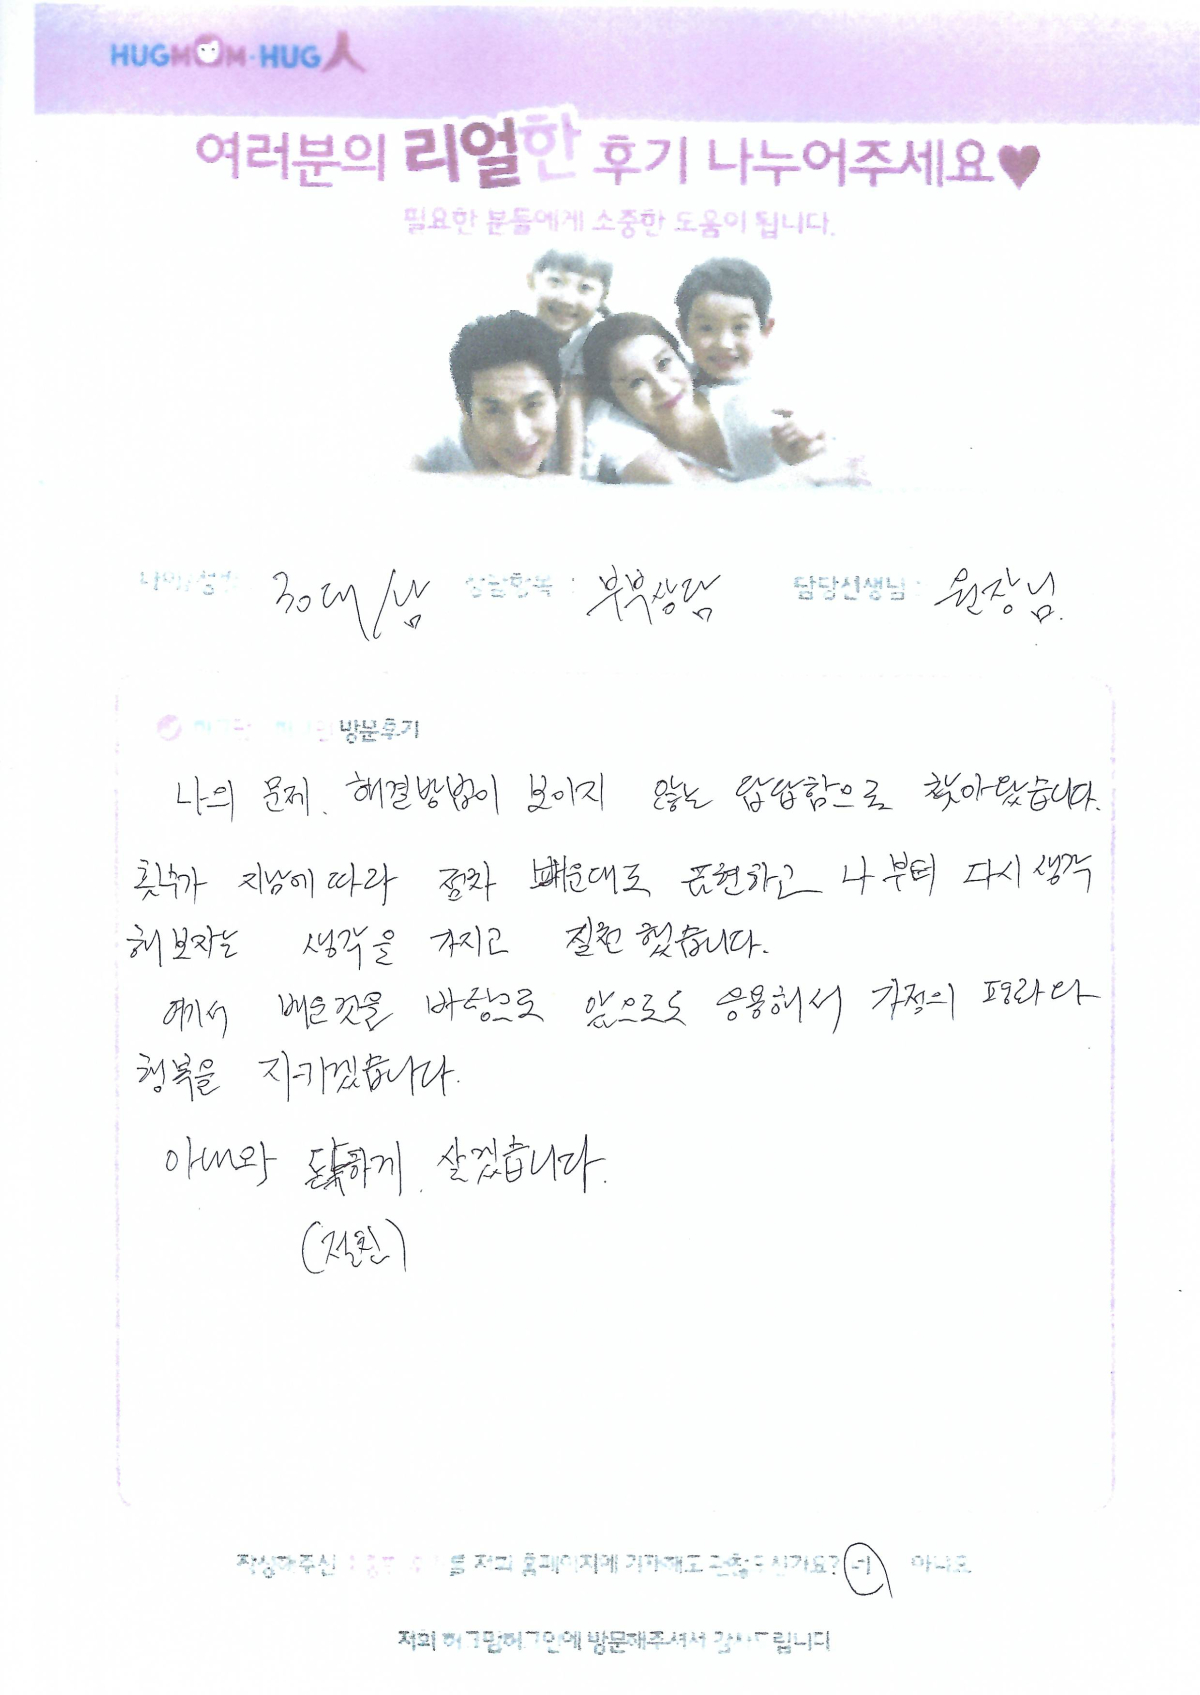 HUGMOM·HUG人
여러분의 리얼한 후기 나누어주세요♥
필요한 분들에게 소중한 도움이 됩니다.
나이/성별 30대/남 상담항목 : 부부상담 담당선생님 : 원장님.
방문후기
나의 문제. 해결방법이 보이지 않는 답답함으로 찾아왔습니다.
횟수가 지남에 따라 점차 배운대로 표현하고 나부터 다시 생각
해보자는 생각을 가지고 실천했습니다.
배운것을 바탕으로 앞으로도 응용해서 가정의 평화와
행복을 지키겠습니다.
아내와 살겠습니다.
(절친)
작성해주신 를 저희 홈페이지에 기재해도 괜찮으신가요? 네 아니오
저희 허그맘허그인에 방문해주셔서 감사드립니다